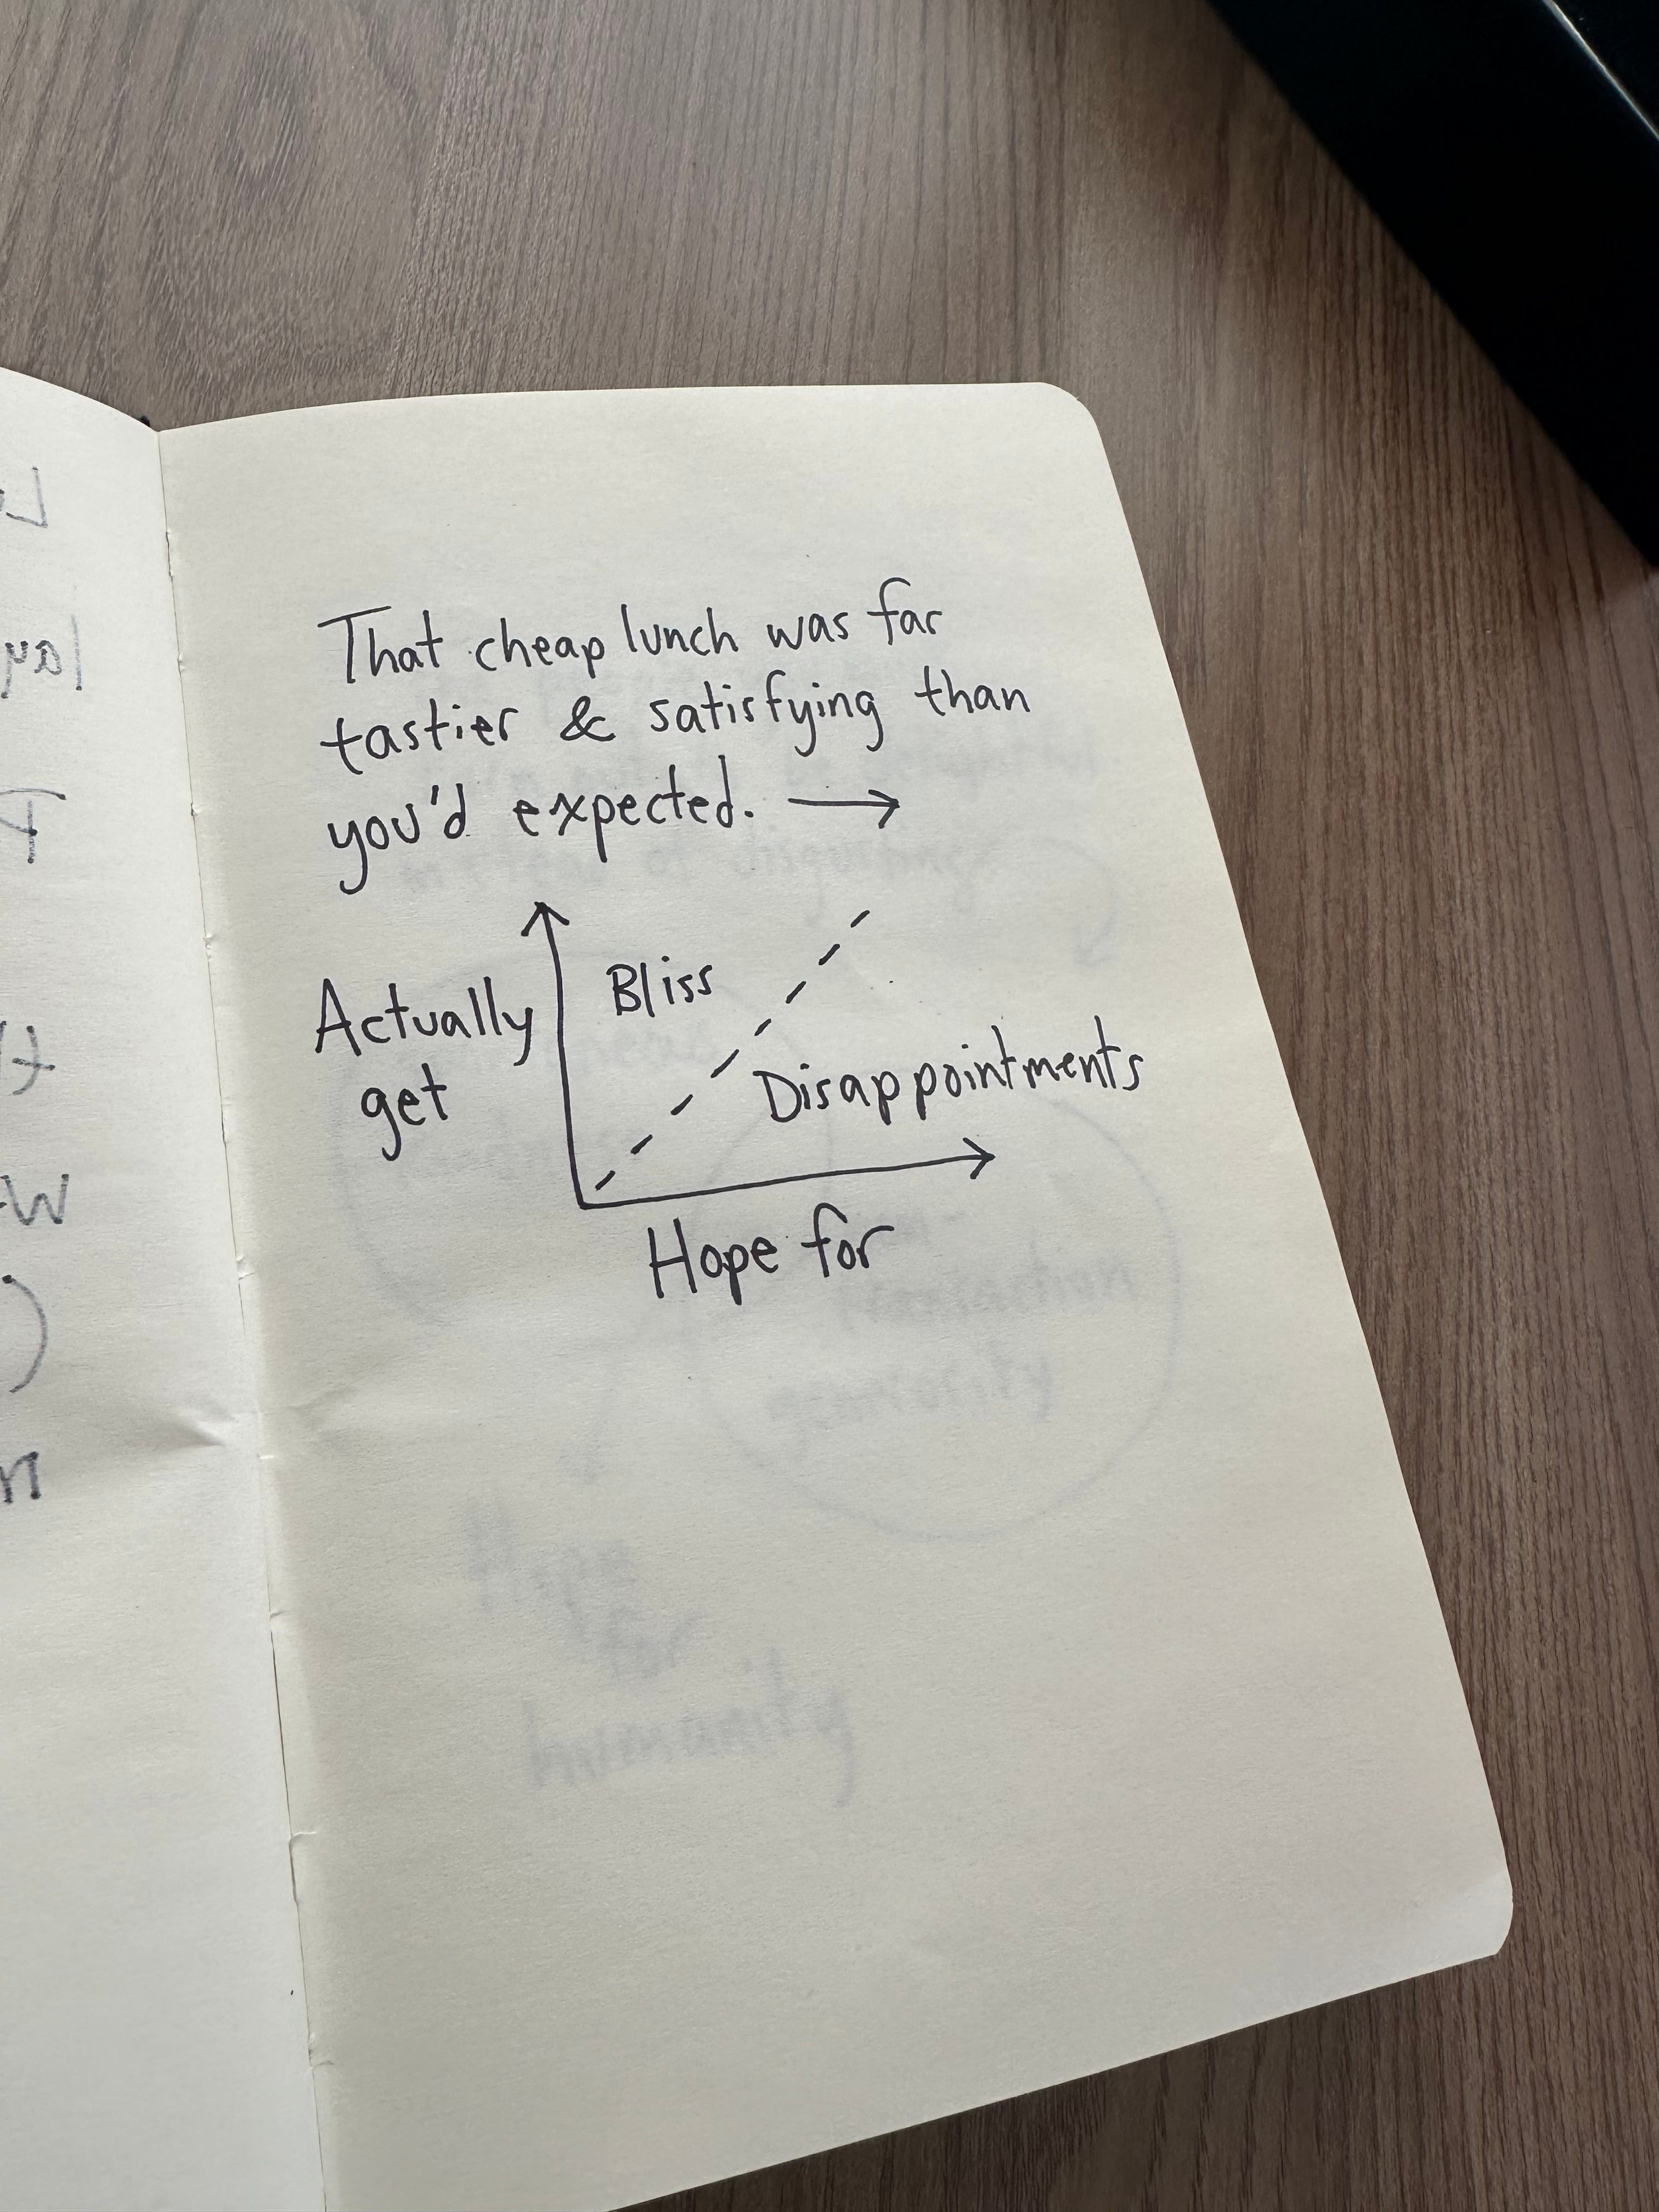 That cheap lunch was far
tastier & satisfying than
you'd expected. →
Bliss
Actually
get
Disappointments
Hope for
Hope
for
humanity